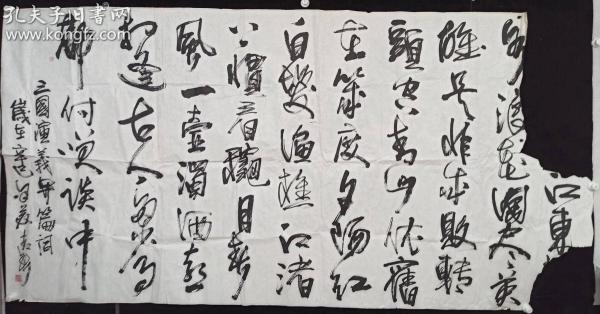 孔夫子旧书网
www.kongfz.com
江東
水浪花淘盡英
雄是非成敗轉
頭空青山依舊
在幾度夕陽紅
白髮漁樵江渚
上慣看秋月春
風一壺濁酒喜
相逢古今多少事
都付笑談中
三國演義開篇詞
歲在辛巳